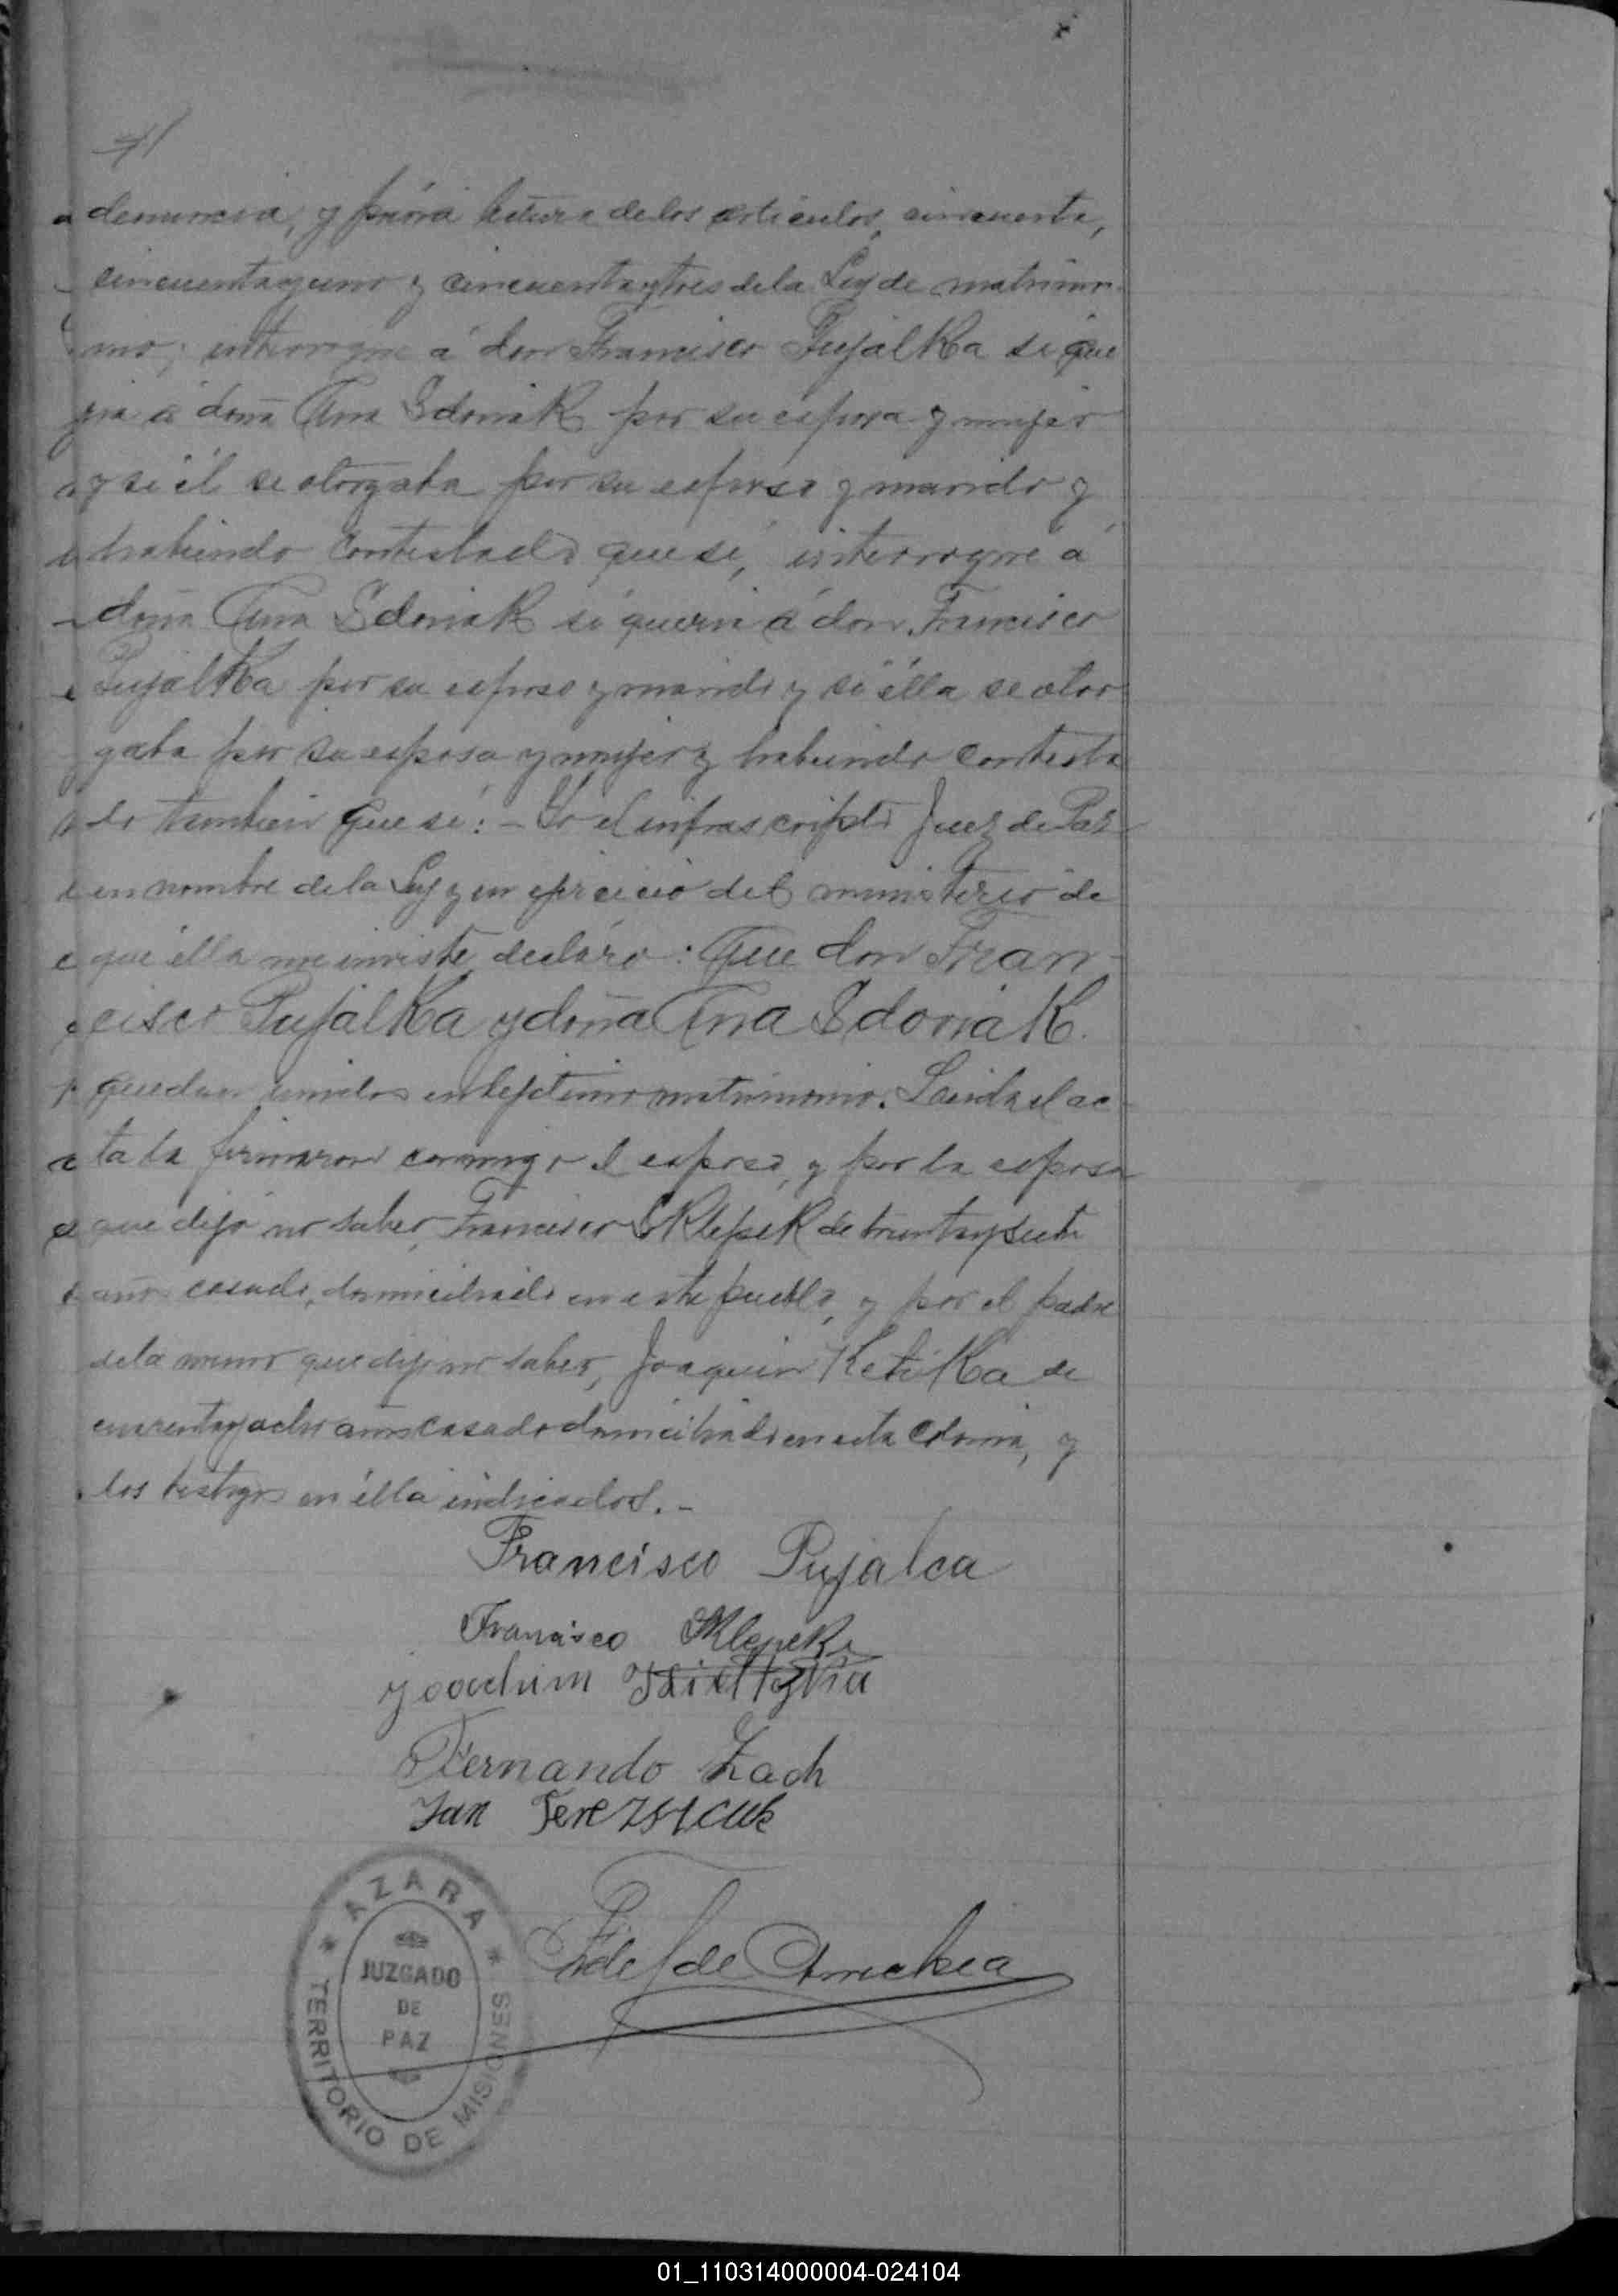 denuncia, y prévia letura de los articulos, cincuenta,
cincuentayuno y cincuentaytres de la Ley de matrimo
nio; interrogue á don Francisco Pujalka si que
ria á doña Ana Sdoniak por su esposa y mujer
y si él se otorgaba por su esposo y marido y
habiendo contestado que sí, interrogue á
doña Ana Sdoniak si queria á don Francisco
Pujalka por su esposo y marido y si élla se otor
gaba por su esposa y mujer y habiendo contesta
do tambien que sí: - Yo el infrascripto Juez de Paz
en nombre de la Ley y en ejercicio del ministerio de
que élla me inviste, decláro: Que don Fran-
cisco Pujalka y doña Ana Sdoniak
quedan unidos en lejitimo matrimonio. Leida el ac
ta la firmaron conmigo el esposo, y por la esposa
que dijo no saber, Francisco Sklepek de treintaysiete
años casado, domiciliado en este pueblo, y por el padre
de la menor que dijo no saber, Joaquin Ketika de
cuarentayocho años casado domiciliado en esta Colonia, y
los testigos en élla indicados. -
Francisco Pujalca
Francisco Sklepek
Joachim
Fernando Zach
Jan
Fidel de Amechea
AZARA
JUZGADO
DE
PAZ
TERRITORIO DE MISIONES
01_110314000004-024104